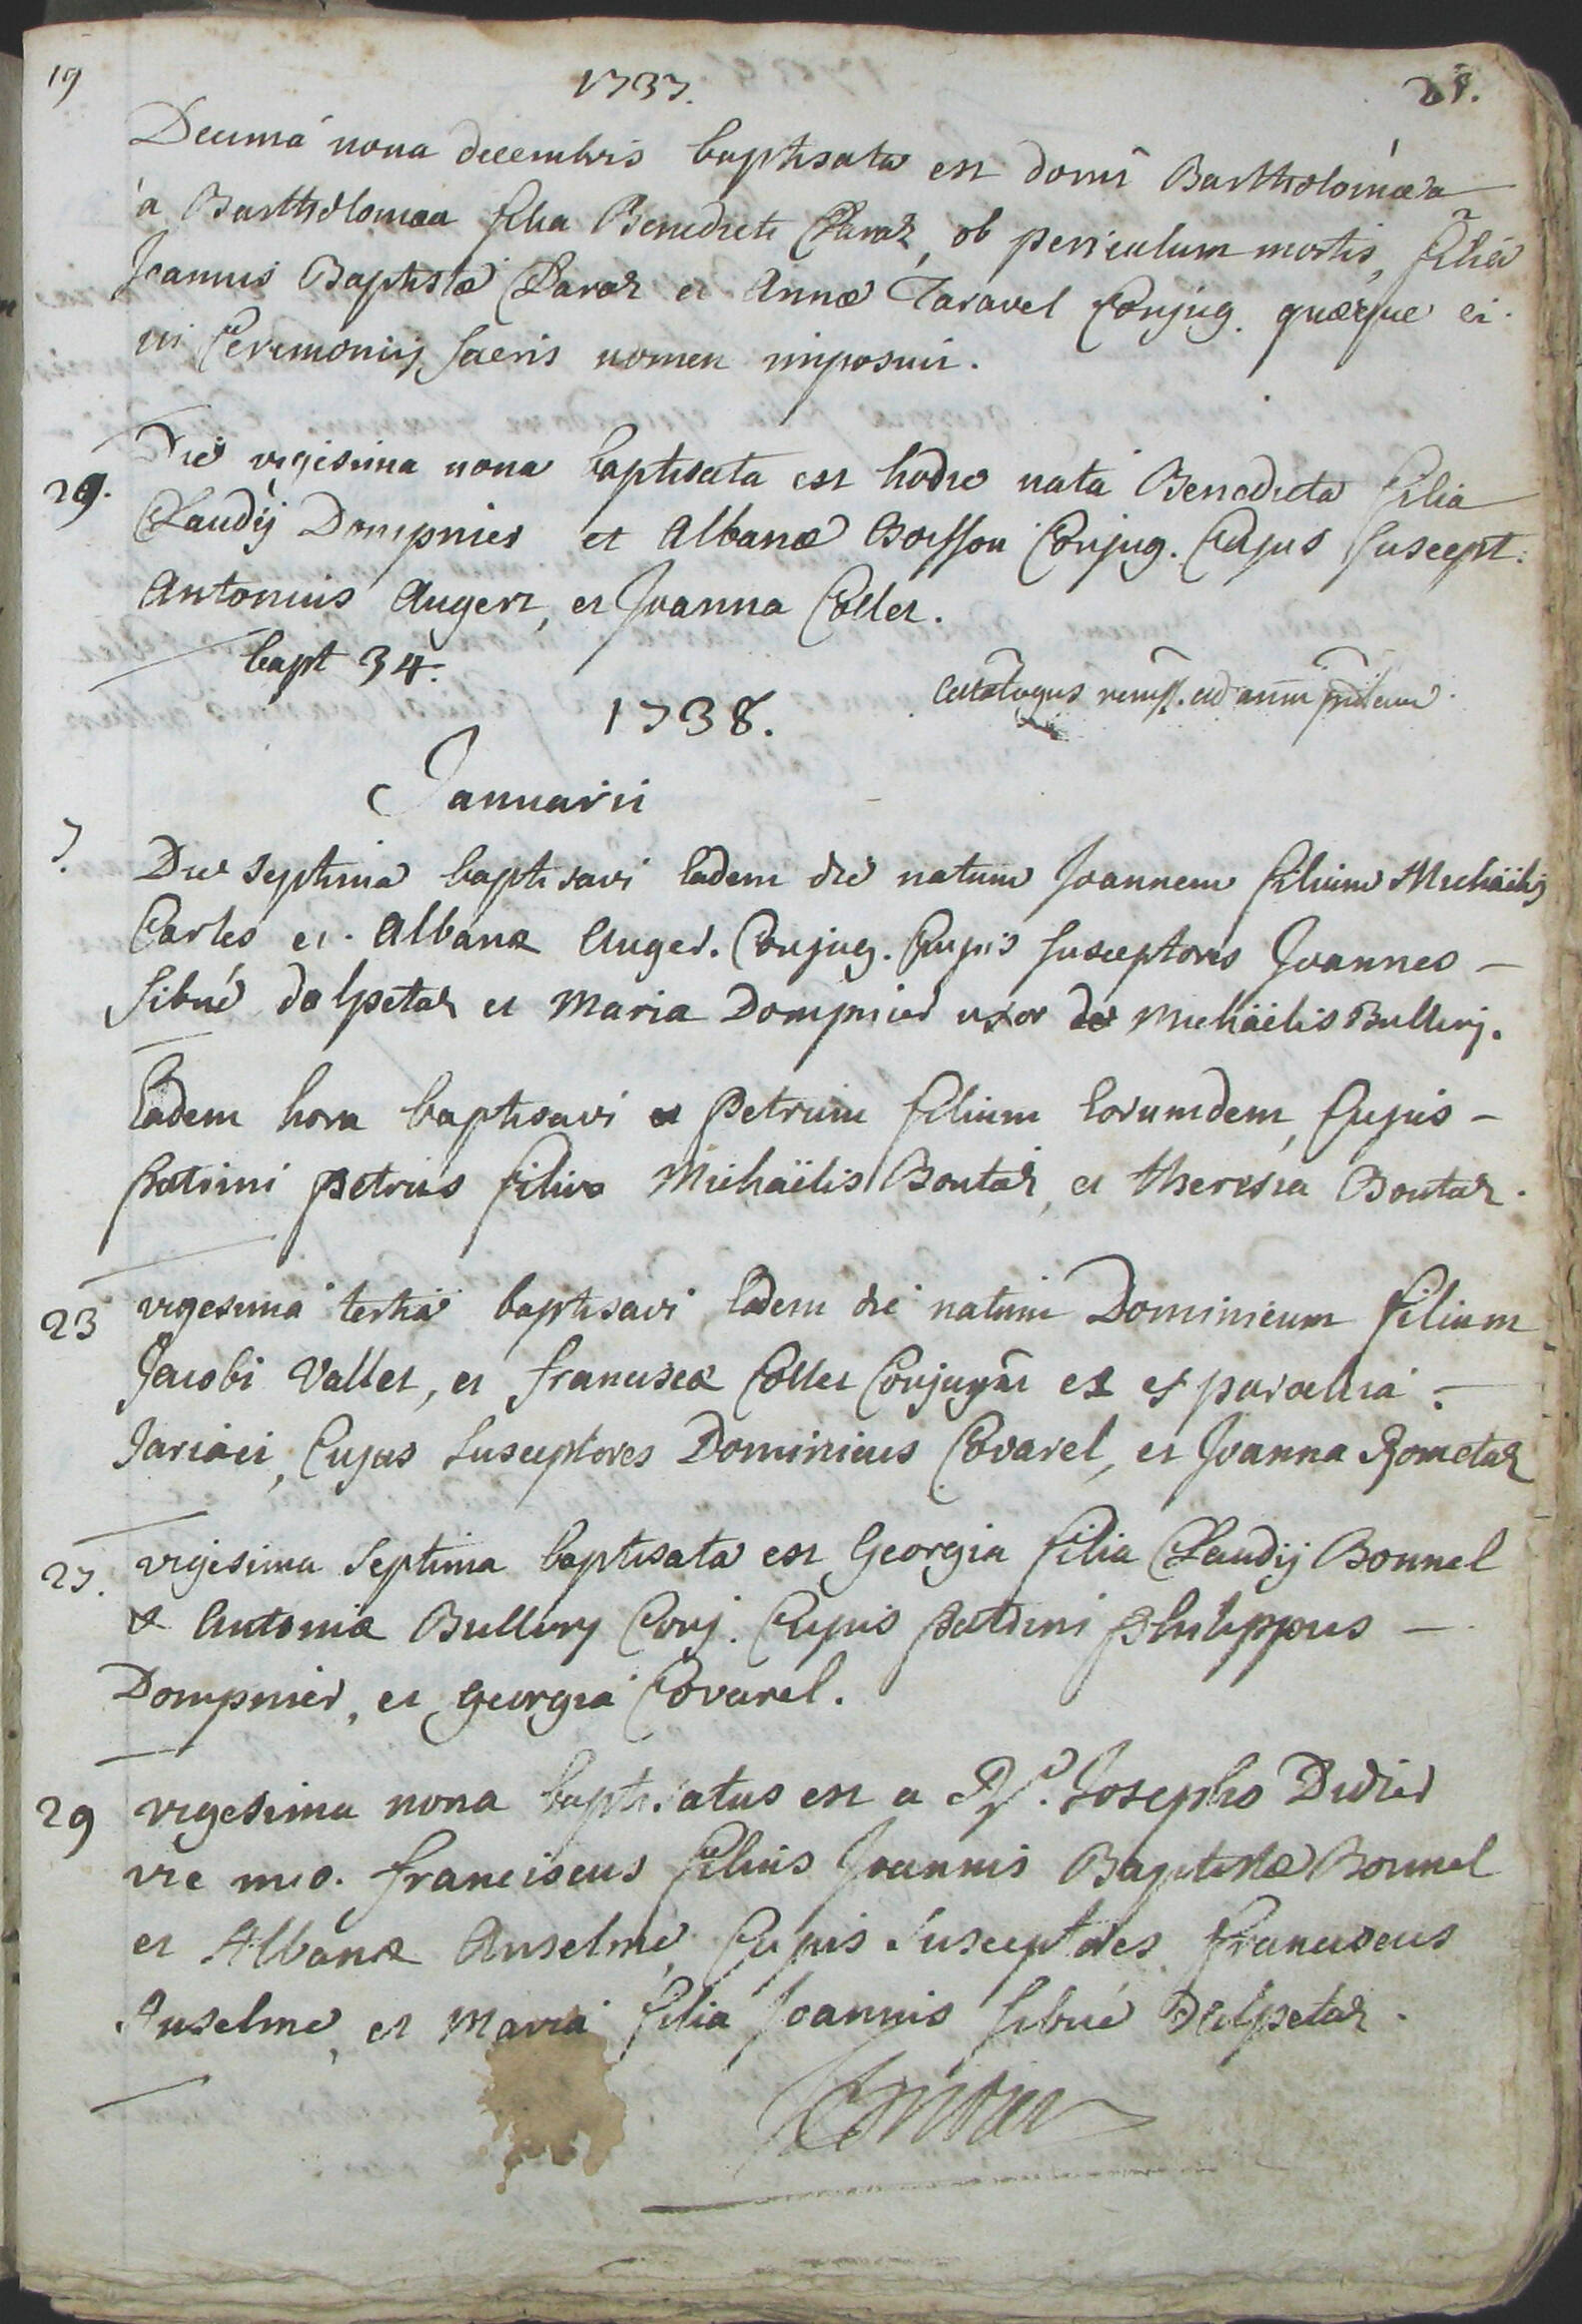 19 1737. 28.
Decima nona decembris baptisata est domi Bartholomæa
a Bartholomæa filia Benedicti Claraz, ob periculum mortis, filia
Joannis Baptistæ Claraz et Annæ Taravel Conjug. quæque ei
in Ceremoniis sacris nomen imposuit.
29. Die vigesima nona baptisata est hodie nata Benedicta filia
Claudij Dompnier et Albanæ Boisson Conjug. Cujus suscept.
Antonius Auger, et Joanna Collet.
bapt 34.
Catalogus
1738.
Januarii
7. Die septima baptisavi Eadem die natum Joannem filium Michaëlis
Carles et Albanæ Auger. Conjug. Cujus susceptores Joannes –
Sibué dalpetaz et Maria Dompnier uxor Michaëlis Bullery.
Eadem hora baptisavi Petrum filium Eorumdem, Cujus –
Patrini Petrus filius Michaëlis Boutaz, et Theresia Boutaz.
23 vigesima tertia baptisavi Eadem die natum Dominicum filium
Jacobi Vallet, et franciscæ Collet Conjugum et parochia –
Jariaci, Cujus Susceptores Dominicus Covarel, et Joanna Rometaz
27. vigesima Septima baptisata est Georgia filia Claudij Bonnel
& Antoniæ Bullery Conj. Cujus Patrini Philippus –
Dompnier, et Georgia Covarel.
29 vigesima nona baptisatus est a Rd. Josepho Didier
vic meo. franciscus filius Joannis Baptistæ Bonnel
et Albanæ Anselme, Cujus Susceptores franciscus
Anselme, et Maria filia Joannis Sibué Dalpetaz.